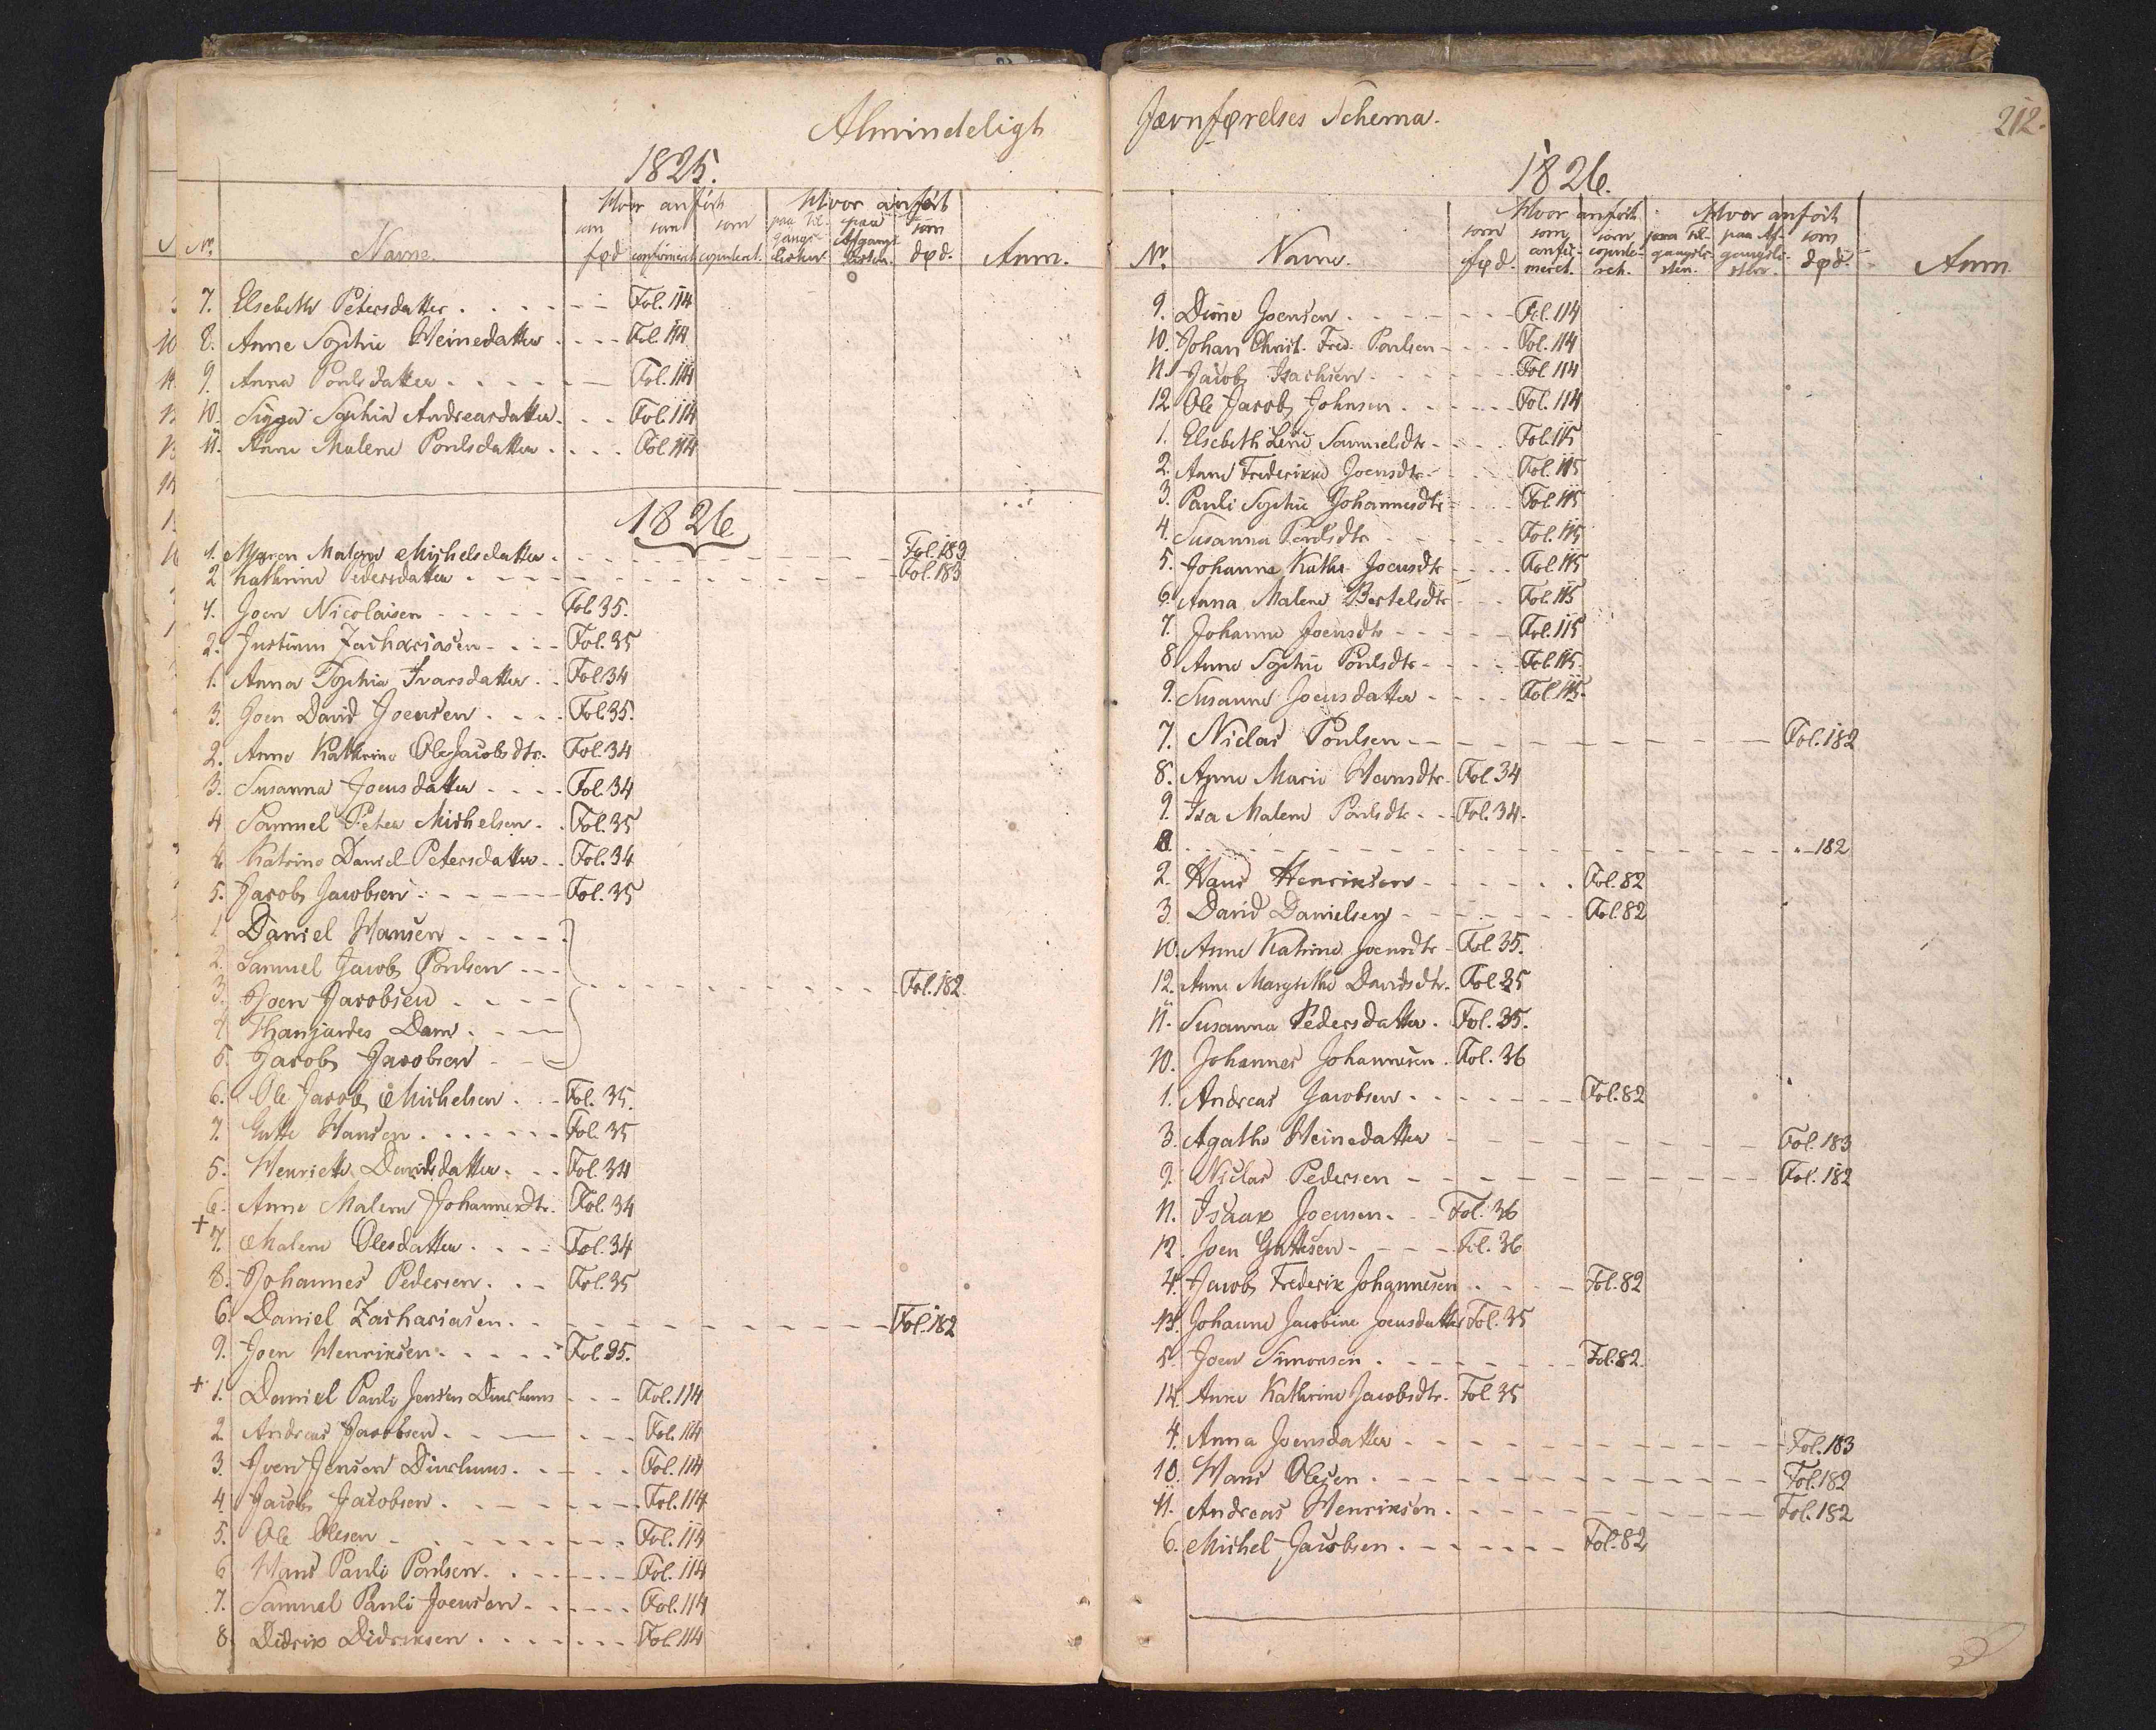 Almindeligt
1825.
Hvor anført
Hvor anført
Nr. Navne. som fød som confirmeret som copuleret. paa Til-gangs-Listen paa Afgangs Listen. som død. Anm.
7. Elsebeth Petersdatter Fol. 114
8. Anne Sophie Heinedatter Fol. 114
9. Anna Poulsdatter Fol. 114
10. Sigga Sophia Andreasdatter Fol. 114
11. Anne Malene Poulsdatter Fol. 114
1826
1. Maren Malene Michelsdatter Fol. 183
2 Kathrine Pedersdatter Fol. 183
1. Joen Nicolaisen Fol. 35.
2. Justinus Zachariasen Fol. 35
1. Anna Sophia Ivarsdatter Fol 34
3. Joen David Joensen Fol. 35.
2. Anne Kathrine Ole Jacobsdtr. Fol. 34
3. Susanna Joensdatter Fol. 34
4 Samuel Peter Michelsen Fol. 35
4. Katrine Daniel Petersdatter Fol. 34
5. Jacob Jacobsen Fol. 35
1 Daniel Hansen
2. Samuel Jacob Poulsen
3. Joen Jacobsen Fol. 182
4. Dam
5. Jacob Jacobsen
6. Ole Jacob Michelsen Fol. 35.
7. Gutte Hansen Fol. 35
5. Henriette Davidsdatter Fol. 34
6. Anne Malene Johannesdtr. Fol. 34
+ 7. Malene Olesdatter Fol. 34
8. Johannes Pedersen Fol. 35
6. Daniel Zachariasen Fol. 182
9. Joen Henriksen Fol. 35.
+ 1. Daniel Pauli Jensen Fol. 114
2. Andreas Jacobsen Fol. 114
3. Joen Jensen Fol. 114
4. Jacob Jacobsen Fol. 114
5. Ole Olesen Fol. 114
6 Hans Pauli Poulsen Fol. 114
7. Samuel Pauli Joensen Fol. 114
8. Didrik Didriksen Fol. 114
Jævnførelses Schema.
212.
1826.
Hvor anført
Hvor anført
Nr. Navne. som fød som confirmeret. som copuleret. paa Til-gangsli-sten. paa Af-gangsli-sten som død. Anm.
9. Dime Joensen Fol. 114
10. Johan Christ. Fred. Poulsen Fol. 114
11. Jacob Isachsen Fol 114
12. Ole Jacob Johnsen Fol. 114
1. Elsebeth Lene Samuelsdtr Fol. 115
2. Anne Frederikke Joensdtr. Fol. 115
3. Pauli Sophie Johannesdtr Fol. 115
4. Susanna Poulsdtr Fol. 115
5. Johanna Kathr. Joensdtr Fol. 115
6. Anna Malene Bertelsdtr Fol. 115
7. Johanne Joensdtr Fol. 115
8. Anne Sophie Poulsdtr Fol. 115
9. Susanne Joensdatter Fol. 115.
7. Niclas Poulsen Fol. 182
8. Anne Marie Hansdtr Fol. 34
9. Isa Malene Poulsdtr Fol. 34.
8. 182
2. Hans Henriksen Fol. 82
3. David Danielsen Fol. 82
10. Anne Katrine Joensdtr Fol. 35.
12. Anne Margrethe Davidsdtr. Fol. 35
11. Susanna Pedersdatter. Fol. 35.
10. Johannes Johannesen. Fol. 36
1. Andreas Jacobsen Fol. 82
3. Agathe Heinedatter Fol. 183
9. Niclas Pedersen Fol. 182
11. Isaak Joensen Fol. 36
12. Joen Guttesen Fol. 36
4. Jacob Frederik Johannesen Fol. 82
13. Johanne Jacobine Joensdatter Fol. 35
5. Joen Simonsen Fol. 82.
14. Anne Kathrine Jacobsdtr. Fol. 35
4. Anna Joensdatter Fol. 183
10. Hans Olesen Fol. 182
11. Andreas Henriksen Fol. 182
6. Michel Jacobsen Fol. 82